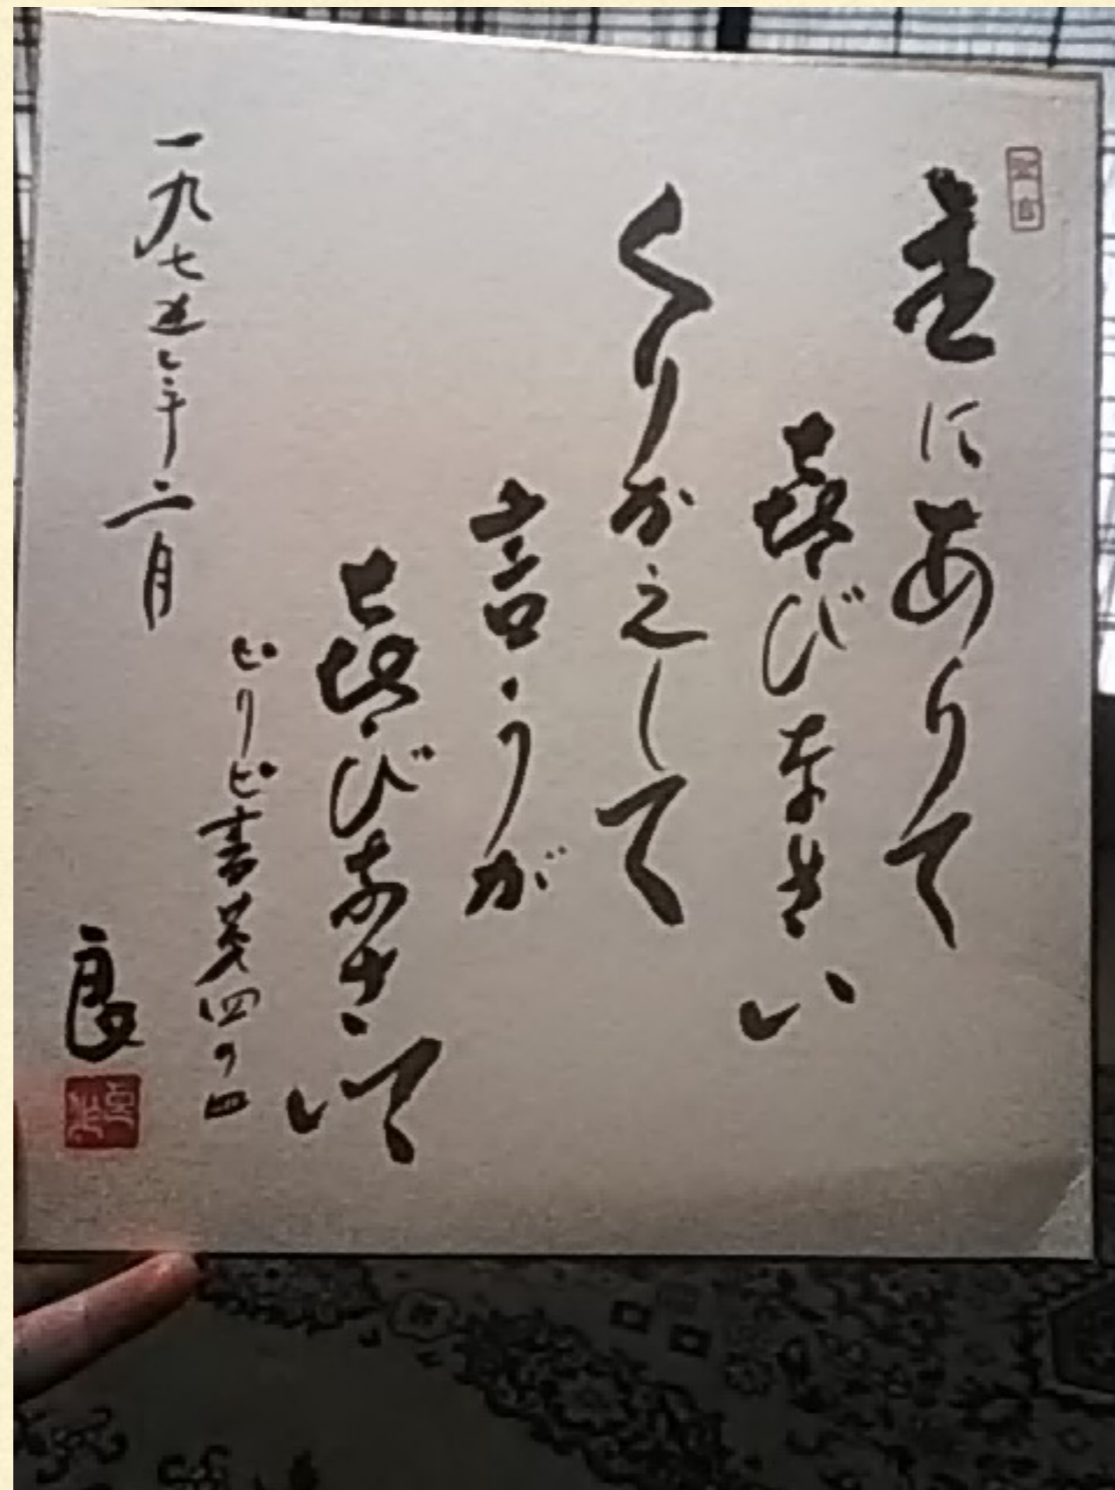 主にありて
喜びなさい
くりかえして
言うが
喜びなさいて
ピリピ書四の四
一九七五年二月
良